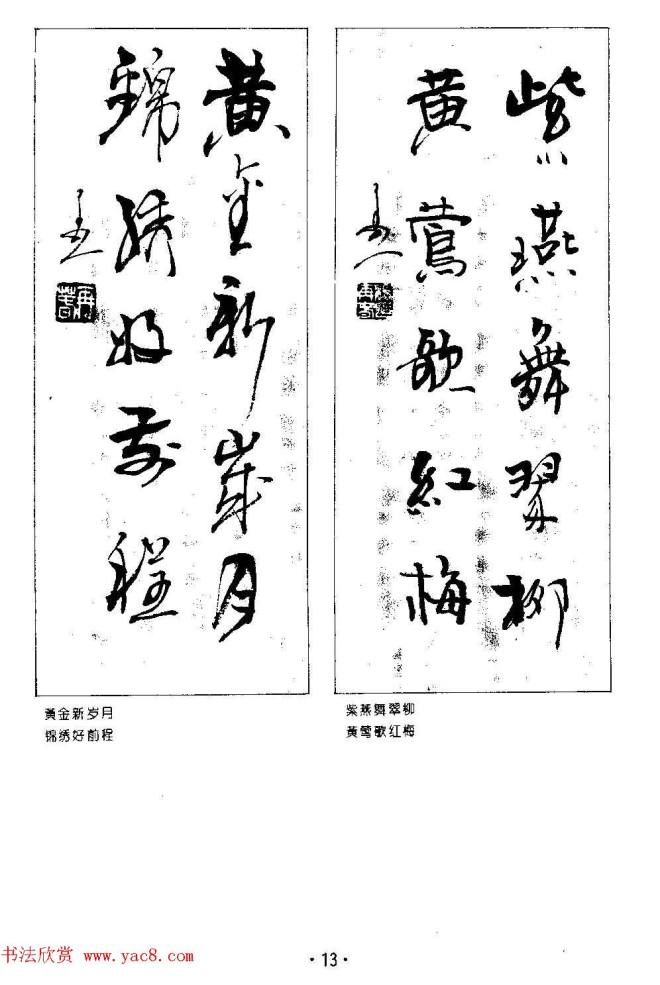 紫燕舞翠柳
黄莺歌紅梅
黄金新歲月
錦绣好前程
紫燕舞翠柳
黄莺歌红梅
黄金新岁月
锦绣好前程
·13·
书法欣赏 www.yac8.com